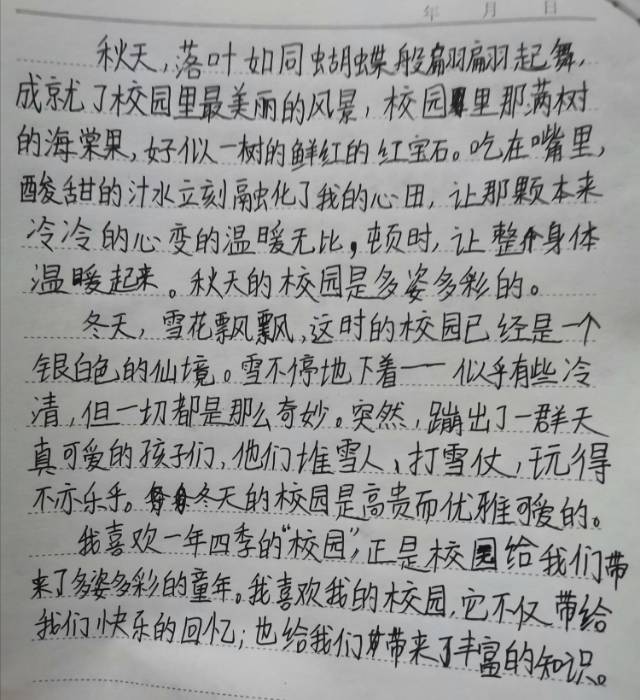 年 月 日
秋天,落叶如同蝴蝶般翩翩起舞,
成就了校园里最美丽的风景,校园里那满树
的海棠果,好似一树的鲜红的红宝石。吃在嘴里,
酸甜的汁水立刻融化了我的心田,让那颗本来
冷冷的心变的温暖无比,顿时,让整个身体
温暖起来。秋天的校园是多姿多彩的。
冬天,雪花飘飘,这时的校园已经是一个
银白色的仙境。雪不停地下着——似乎有些冷
清,但一切都是那么奇妙。突然,蹦出了一群天
真可爱的孩子们,他们堆雪人、打雪仗,玩得
不亦乐乎。冬天的校园是高贵而优雅可爱的。
我喜欢一年四季的“校园”,正是校园给我们带
来了多姿多彩的童年。我喜欢我的校园,它不仅带给
我们快乐的回忆;也给我们带来了丰富的知识。